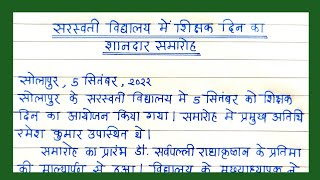 सरस्वती विद्यालय में शिक्षक दिन का
शानदार समारोह
सोलापुर, 5 सितंबर, २०२२
सोलापुर के सरस्वती विद्यालय में 5 सितंबर को शिक्षक
दिन का आयोजन किया गया। समारोह में प्रमुख अतिथि
रमेश कुमार उपस्थित थे।
समारोह का प्रारंभ डॉ. सर्वपल्ली राधाकृष्णन के प्रतिमा
की माल्यार्पण से हुआ। विद्यालय के मुख्याध्यापक ने